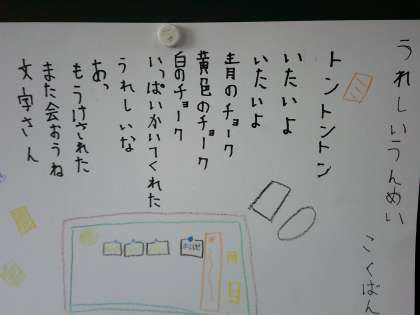 うれしいうんめい
こくばん
トントントン
いたいよ
いたいよ
青のチョーク
黄色のチョーク
白のチョーク
いっぱいかいてくれた
うれしいな
あっ
もうけされた
また会おうね
文字さん